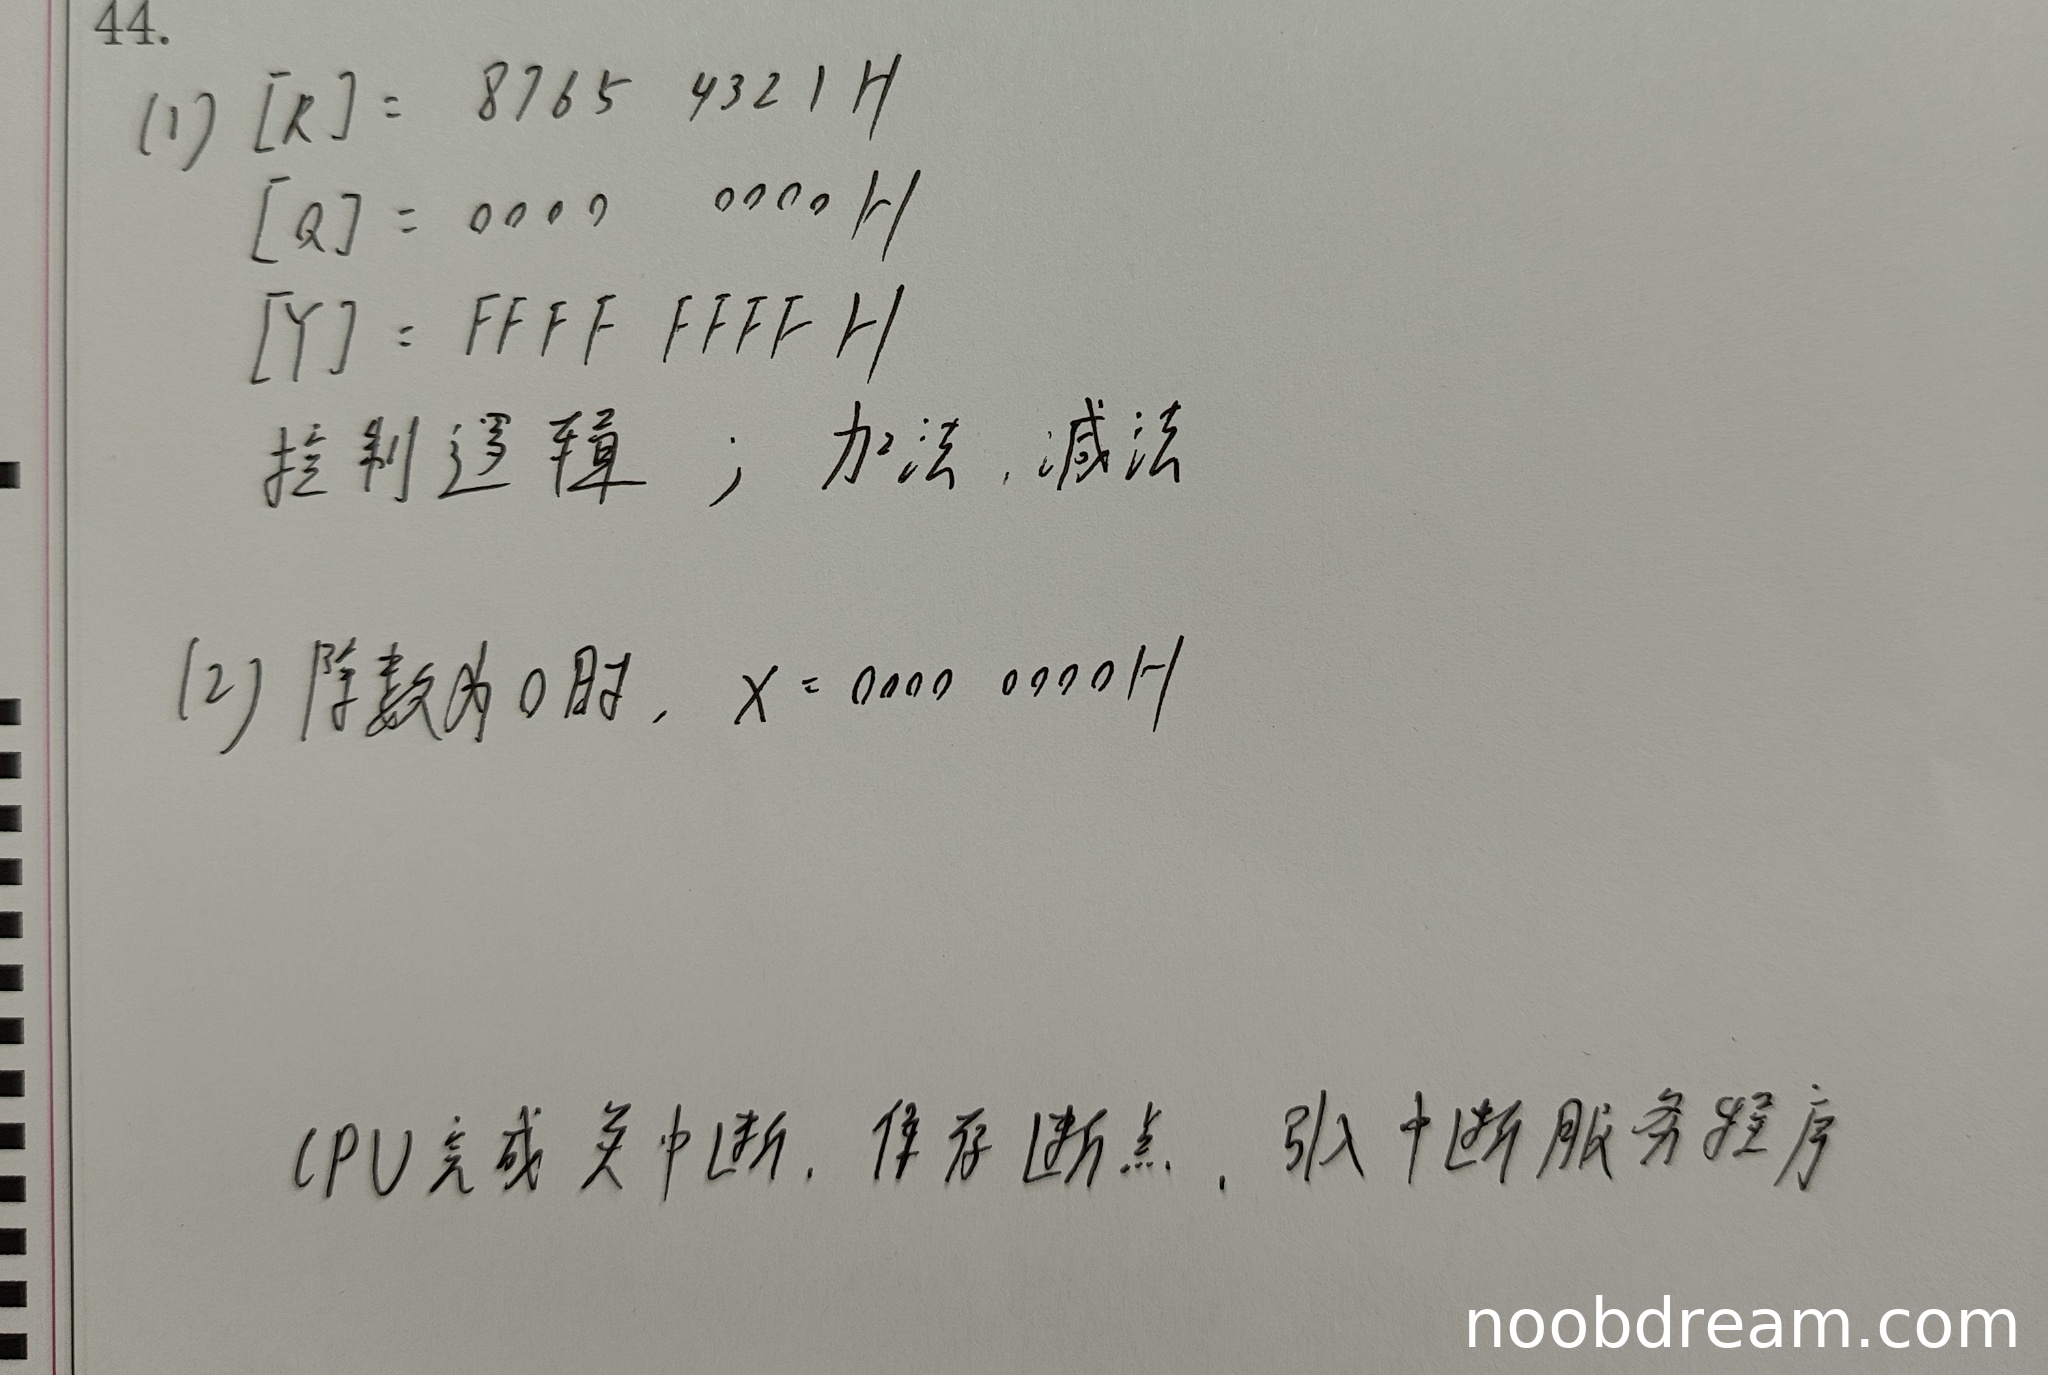 44.
(1) [R] = 8765 4321H
[Q] = 0000 0000H
[Y] = FFFF FFFFH
控制逻辑 ; 加法、减法
(2) 除数为0时, X = 0000 0000H
CPU完成关中断、保存断点、引入中断服务程序
noobdream.com